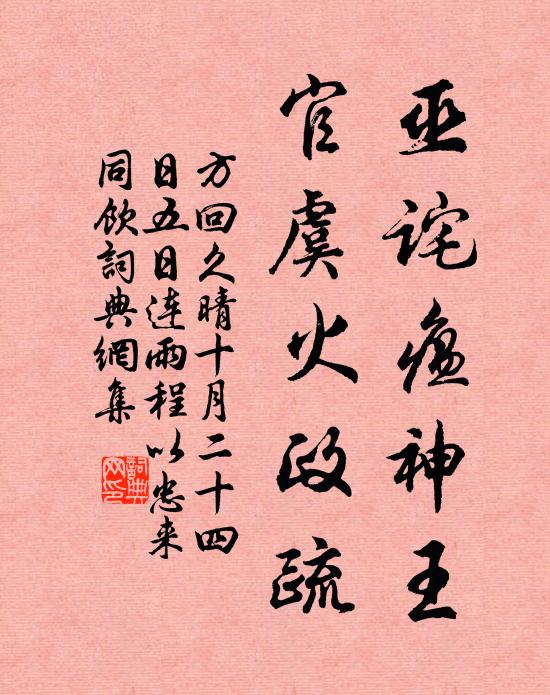 巫詫瘟神王
官虞火政疏
方回久晴十月二十四
日五日連雨程以忠来
同飲詞典網集
詞典
网印